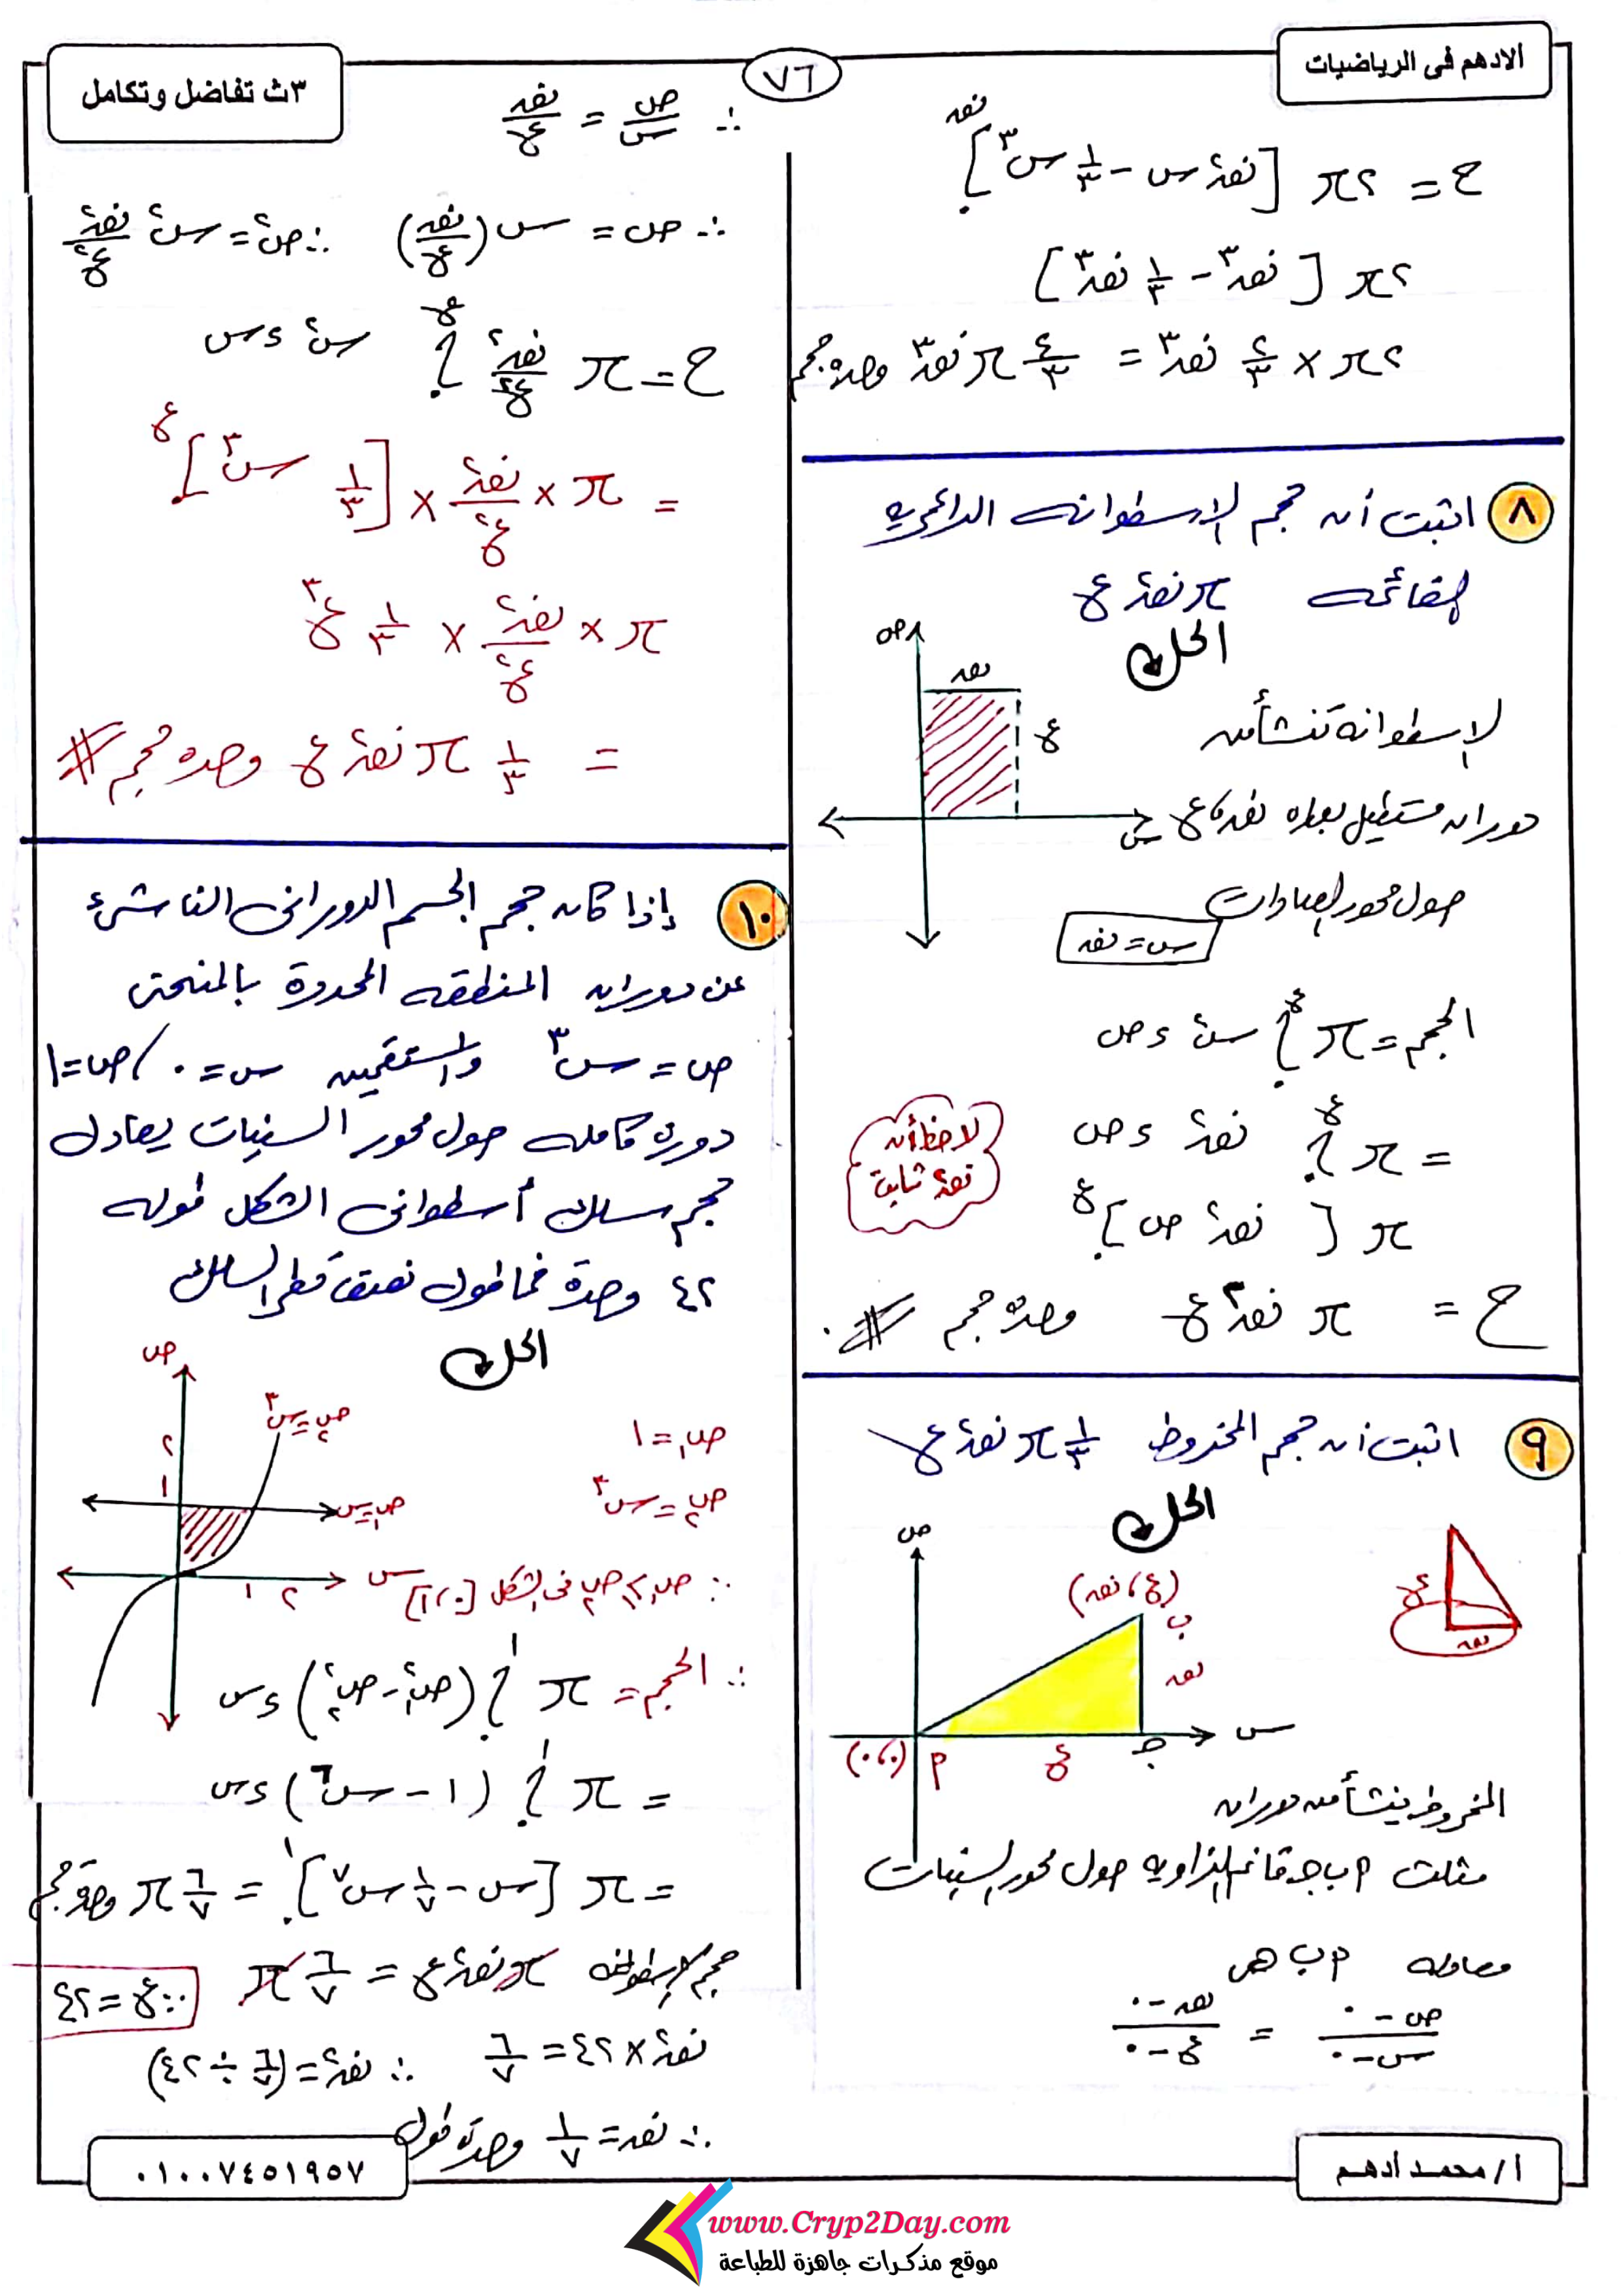 الادهم فى الرياضيات
٧٦
٣ث تفاضل وتكامل
ح = ٢π [نق² س - ١/٣ س³]٠^نق
٢π [نق³ - ١/٣ نق³]
٢π × ٢/٣ نق³ = ٤/٣ π نق³ وحدة حجم
٨ اثبت أن حجم الاسطوانه الدائريه
القائمه π نق² ع
الحل
ص
نق
ع
س
الاسطوانة تنشأ من
دوران مستطيل بعداه نق، ع
حول محور الصادات
س = نق
الحجم = π ∫٠^ع س² ء ص
= π ∫٠^ع نق² ء ص
لاحظ أن
نق² ثابت
π [نق² ص]٠^ع
ح = π نق² ع وحدة حجم #
٩ اثبت أن حجم المخروط ١/٣ π نق² ع
الحل
ص
(ع، نق)
ب
نق
س
ج
ع
م
(٠،٠)
ع
نق
المخروط ينشأ من دوران
مثلث م ب ج قائم الزاويه حول محور السينات
معادله م ب هى
(ص - ٠)/(س - ٠) = (نق - ٠)/(ع - ٠)
∴ ص/س = نق/ع
∴ ص = س (نق/ع) ∴ ص² = س² نق²/ع²
ح = π نق²/ع² ∫٠^ع س² ء س
= π × نق²/ع² × [١/٣ س³]٠^ع
π × نق²/ع² × ١/٣ ع³
= ١/٣ π نق² ع وحدة حجم #
١٠ إذا كان حجم الجسم الدورانى الناشئ
عن دوران المنطقه المحددة بالمنحنى
ص = س³ والمستقيمين س = ٠، ص = ١
دوره كامله حول محور السينات يعادل
حجم سلك أسطوانى الشكل طوله
٤٢ وحدة فما طول نصف قطر السلك
الحل
ص
٢
١
ص٢ = س³
١ ٢
س
ص١ = ١
ص٢ = س³
∴ ص١ > ص٢ فى الشكل [٠،١]
∴ الحجم = π ∫٠^١ (ص١² - ص٢²) ء س
= π ∫٠^١ (١ - س⁶) ء س
= π [س - ١/٧ س⁷]٠^١ = ٦/٧ π وحدة حجم
حجم الاسطوانه π نق² ع = ٦/٧ π
∴ ع = ٤٢
نق² × ٤٢ = ٦/٧ ∴ نق² = (٦/٧ ÷ ٤٢)
∴ نق = ١/٧ وحدة طول
٠١٠٠٧٤٥١٩٥٧
أ/ محمد أدهم
www.Cryp2Day.com
موقع مذكرات جاهزة للطباعة